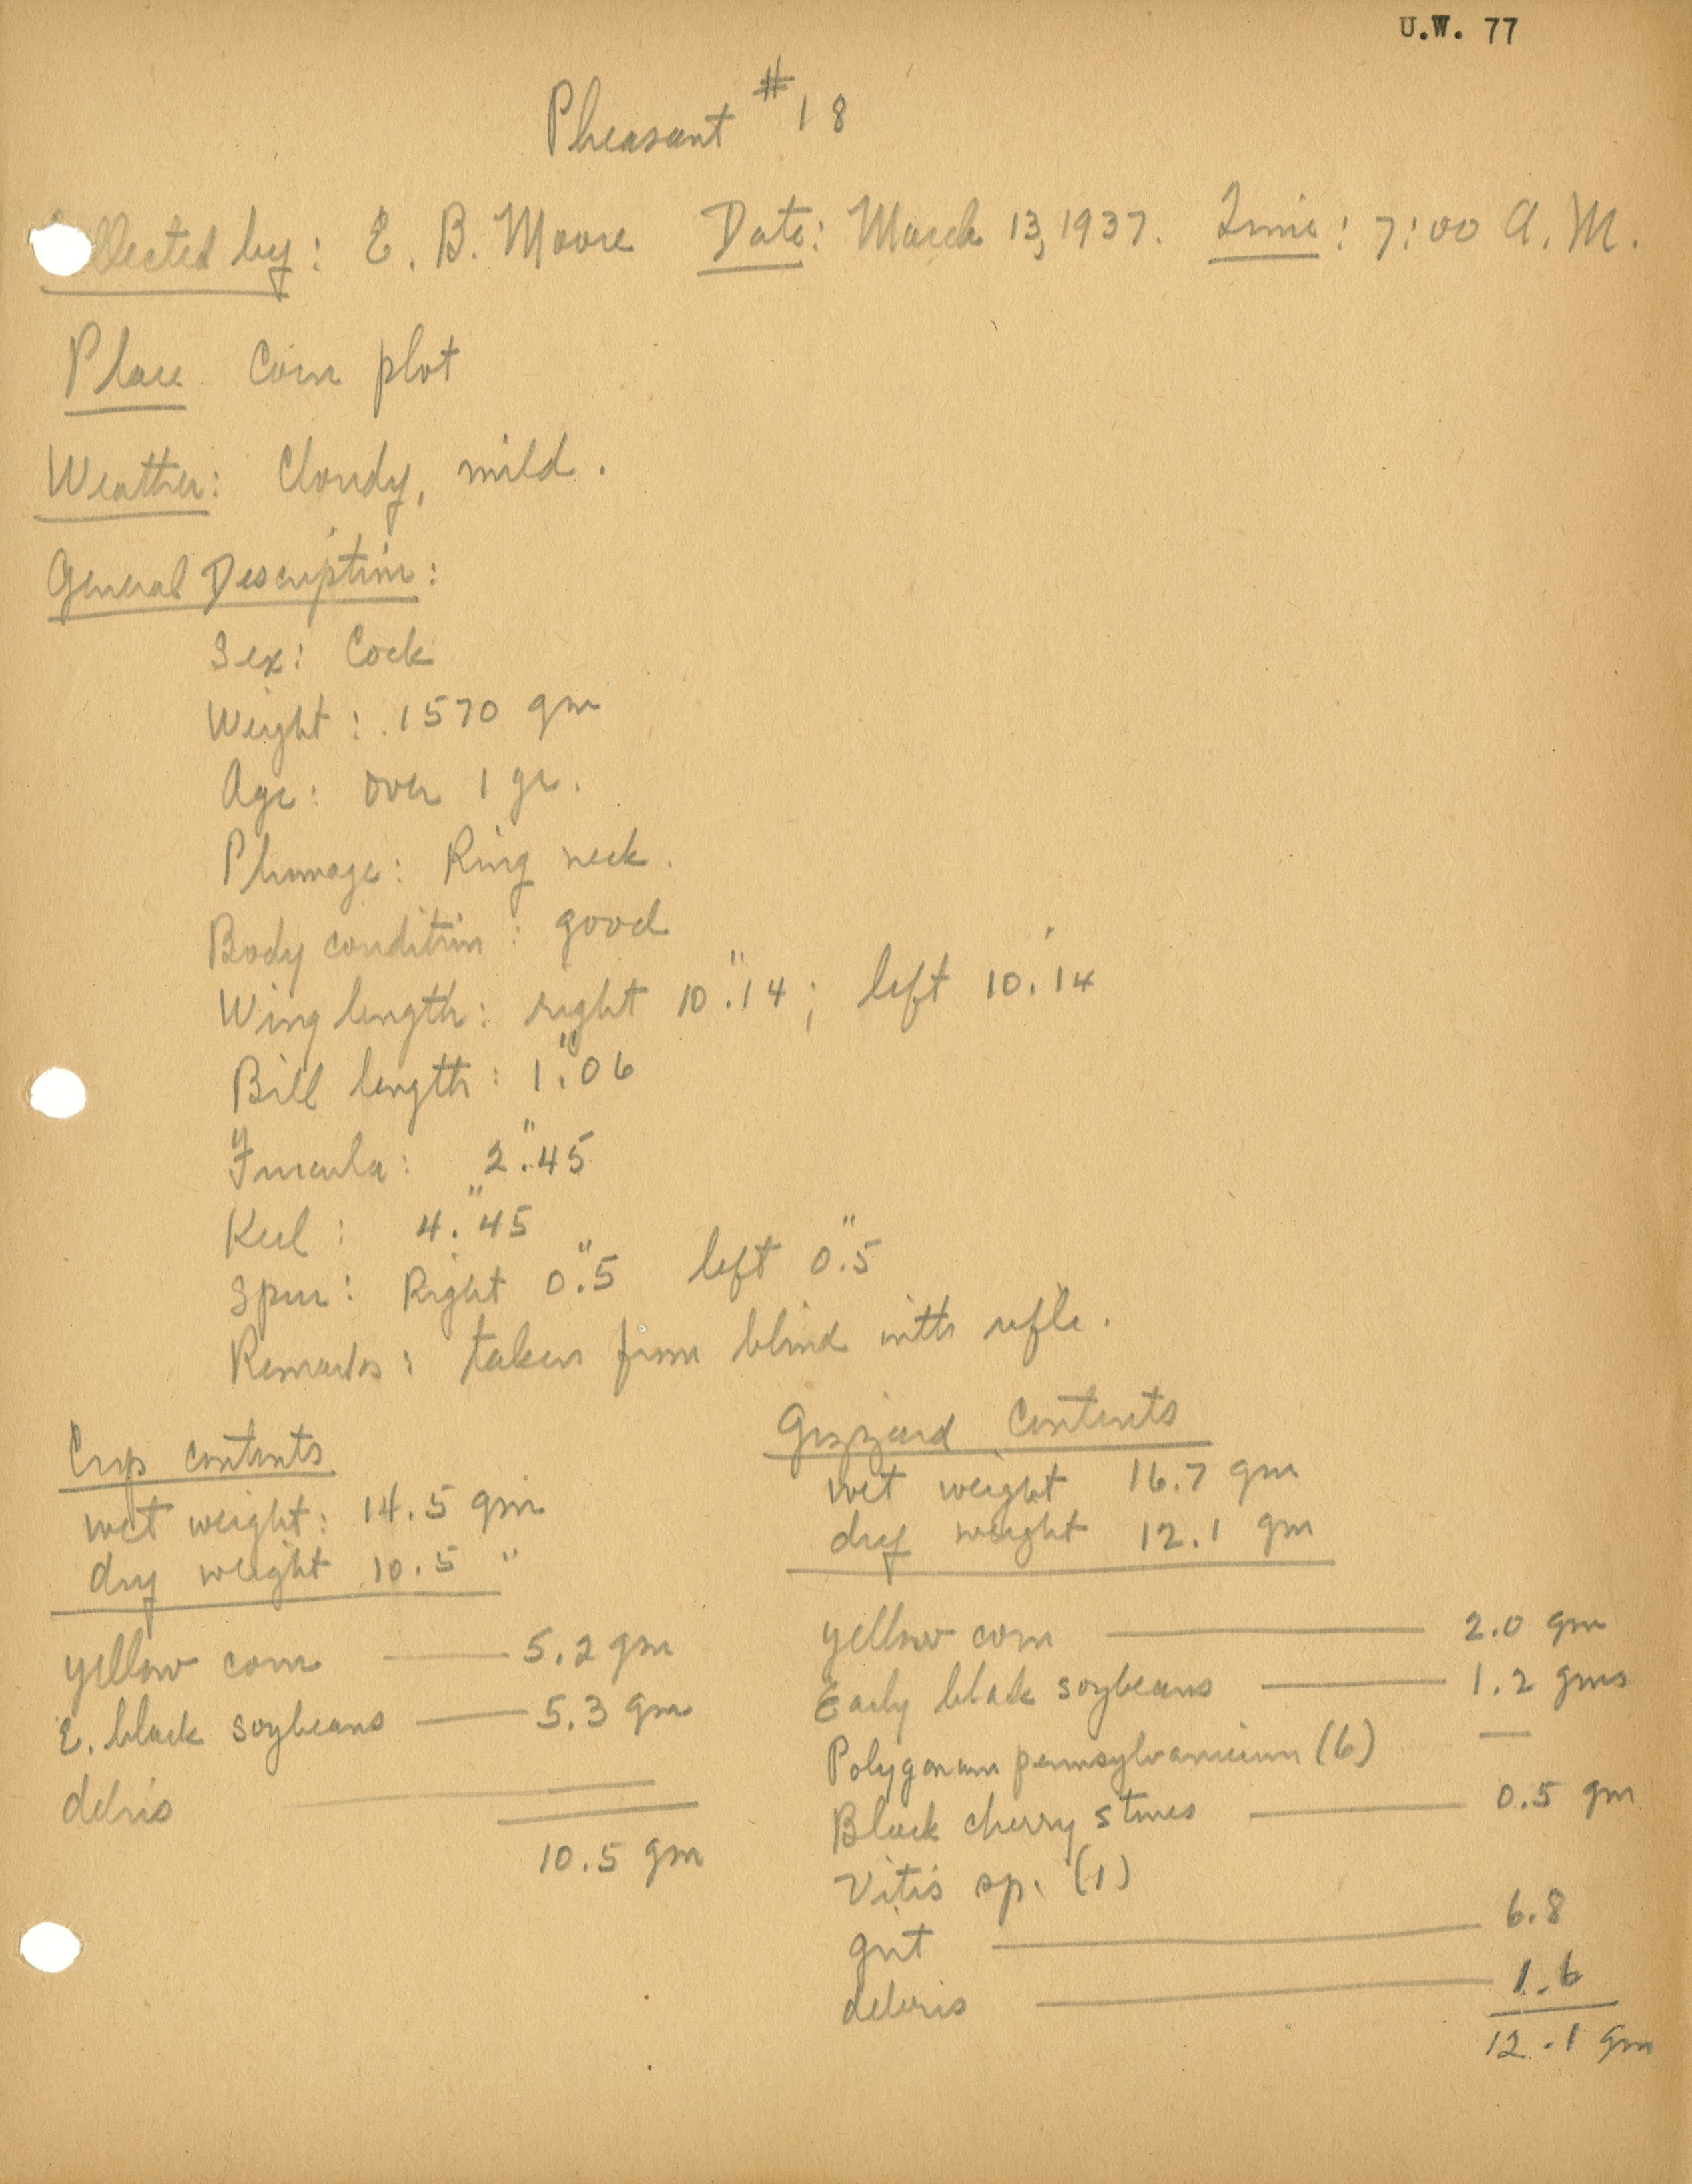 U.W. 77
Pheasant #18
Collected by: E. B. Moore Date: March 13, 1937. Time: 7:00 A.M.
Place Corn plot
Weather: Cloudy, mild.
General Description:
Sex: Cock
Weight: 1570 gm
Age: over 1 yr.
Plumage: Ring neck.
Body condition: good
Wing length: right 10".14; left 10.14
Bill length: 1".06
Furcula: 2".45
Keel: 4".45
Spur: Right 0".5 left 0".5
Remarks: taken from blind with rifle.
Crop contents
wet weight: 14.5 gm
dry weight 10.5 "
yellow corn — 5.2 gm
E. black soybeans — 5.3 gm
debris —
10.5 gm
Gizzard Contents
wet weight 16.7 gm
dry weight 12.1 gm
yellow corn — 2.0 gm
Early black soybeans — 1.2 gms
Polygonum pennsylvanicum (6) —
Black cherry stones — 0.5 gm
Vitis sp. (1)
grit — 6.8
debris — 1.6
12.1 gm